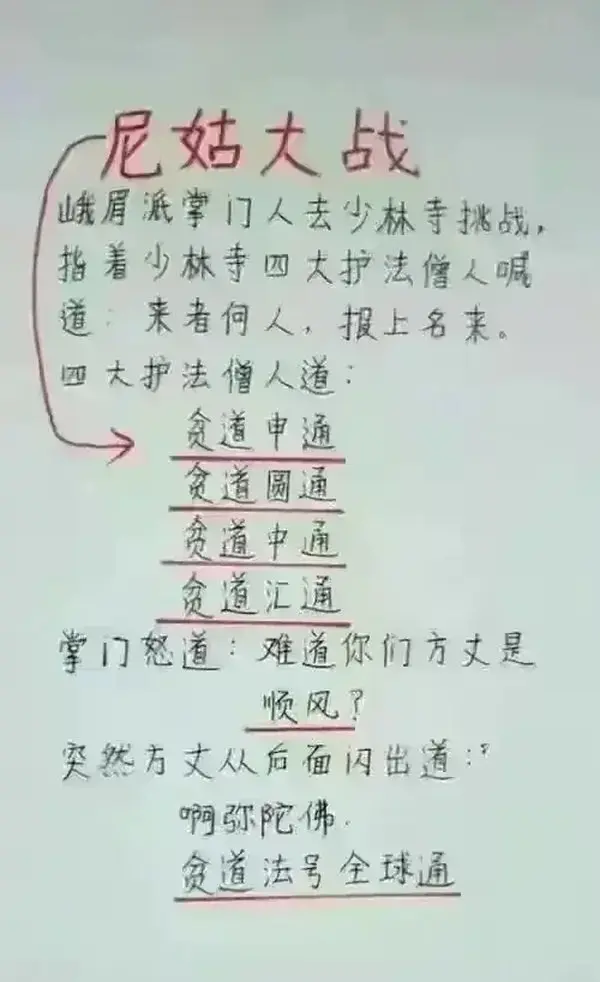 尼姑大战
峨眉派掌门人去少林寺挑战,
指着少林寺四大护法僧人喊
道: 来者何人, 报上名来。
四大护法僧人道:
贫道申通
贫道圆通
贫道中通
贫道汇通
掌门怒道: 难道你们方丈是
顺风?
突然方丈从后面闪出道:
啊弥陀佛.
贫道法号全球通